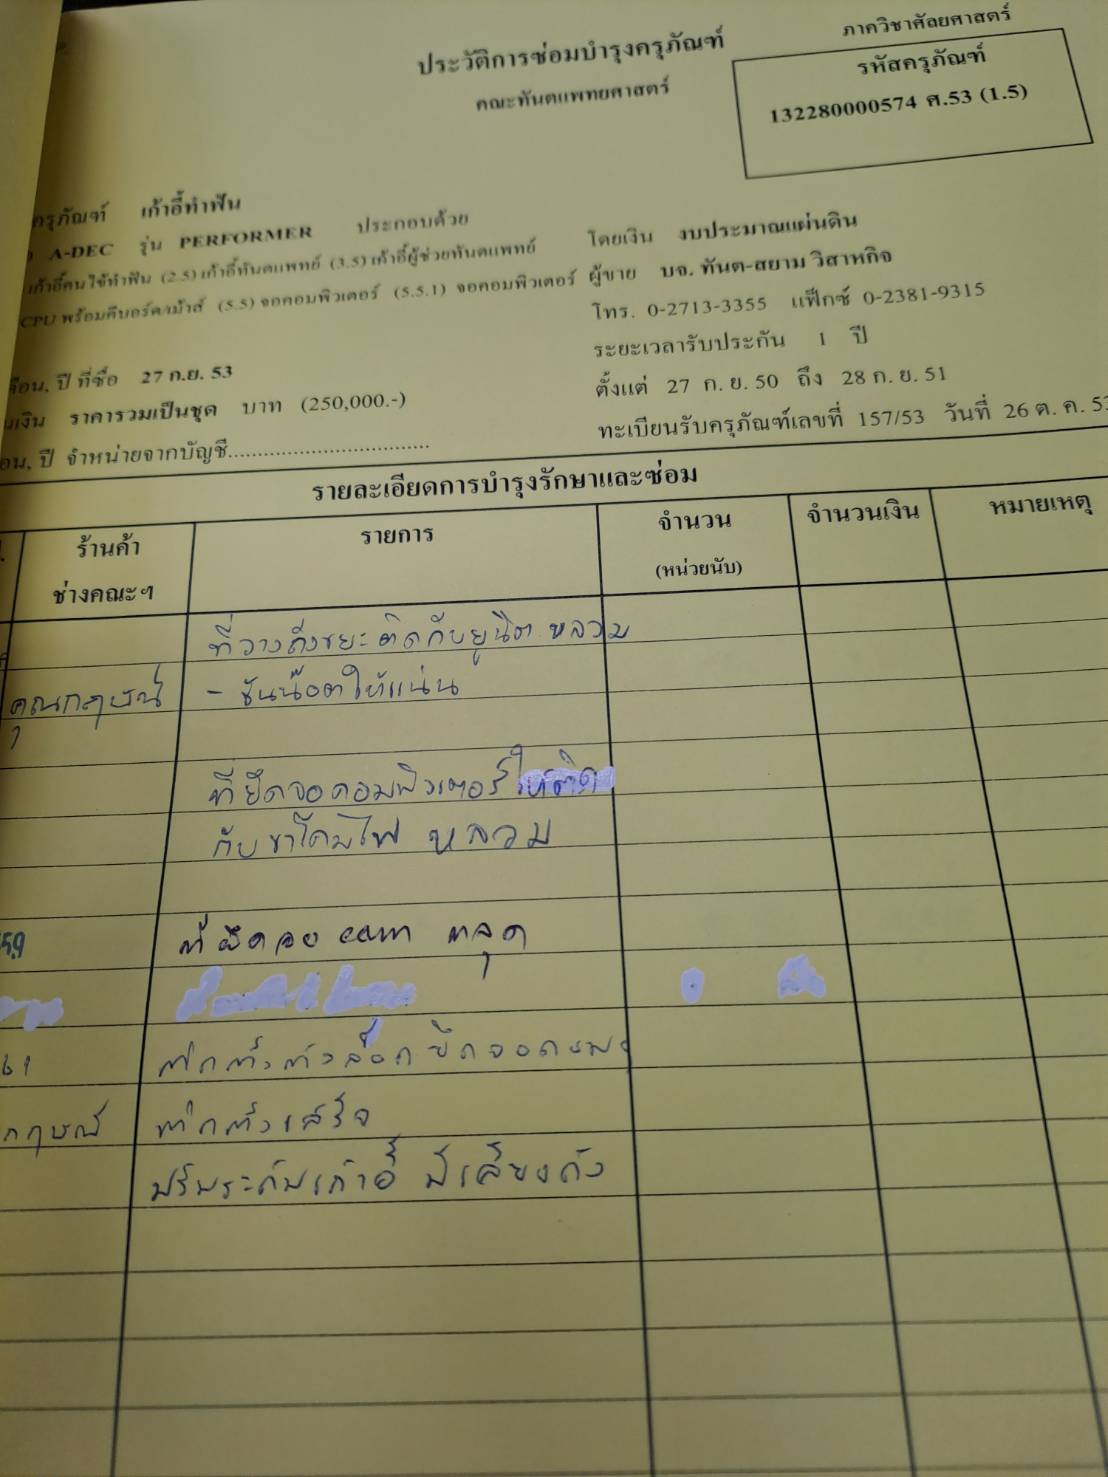 ภาควิชาศัลยศาสตร์
ประวัติการซ่อมบำรุงครุภัณฑ์
คณะทันตแพทยศาสตร์
รหัสครุภัณฑ์
132280000574 ศ.53 (1.5)
ครุภัณฑ์ เก้าอี้ทำฟัน
A-DEC รุ่น PERFORMER ประกอบด้วย
โดยเงิน งบประมาณแผ่นดิน
เก้าอี้คนไข้ทำฟัน (2.5) เก้าอี้ทันตแพทย์ (3.5) เก้าอี้ผู้ช่วยทันตแพทย์
ผู้ขาย บจ. ทันต-สยาม วิสาหกิจ
CPU พร้อมคีบอร์ดเาม้าส์ (5.5) จอคอมพิวเตอร์ (5.5.1) จอคอมพิวเตอร์
โทร. 0-2713-3355 แฟ็กซ์ 0-2381-9315
ระยะเวลารับประกัน 1 ปี
ปี ที่ซื้อ 27 ก.ย. 53
ตั้งแต่ 27 ก.ย. 50 ถึง 28 ก.ย. 51
ราคารวมเป็นชุด บาท (250,000.-)
ทะเบียนรับครุภัณฑ์เลขที่ 157/53 วันที่ 26 ต.ค. 53
ปี จำหน่ายจากบัญชี................................
รายละเอียดการบำรุงรักษาและซ่อม
ร้านค้า
ช่างคณะฯ
รายการ
จำนวน
(หน่วยนับ)
จำนวนเงิน
หมายเหตุ
ที่วางถังขยะติดกับยูนิต หลวม
คุณกฤษณ์ - ขันน๊อตให้แน่น
ที่ยึดจอคอมพิวเตอร์
กับขาโคมไฟ หลวม
59 ที่ยึดจอ com หลุด
61 ติดตั้งตัวล็อกยึดจอคอม
กฤษณ์ ติดตั้งเสร็จ
ปรับระดับเก้าอี้ มีเสียงดัง